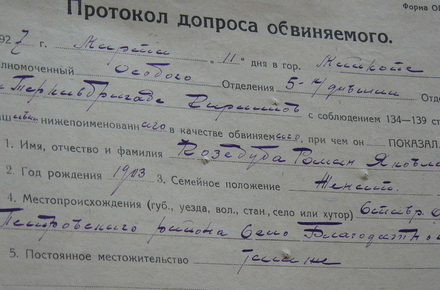 Форма
Протокол допроса обвиняемого.
1927 г. Марта „ 11 " дня в гор. Майкопе
лномоченный Особого Отделения 5- дивизии
с соблюдением 134—139 ст
нижепоименован в качестве обвиняем , при чем он ПОКАЗАЛ
1. Имя, отчество и фамилия Козедуба Роман Яковл
2. Год рождения 1903 3. Семейное положение Женат.
4. Местопроисхождения (губ., уезда, вол., стан, село или хутор) Ставр.
Петровского района Село Благодатно
5. Постоянное местожительство